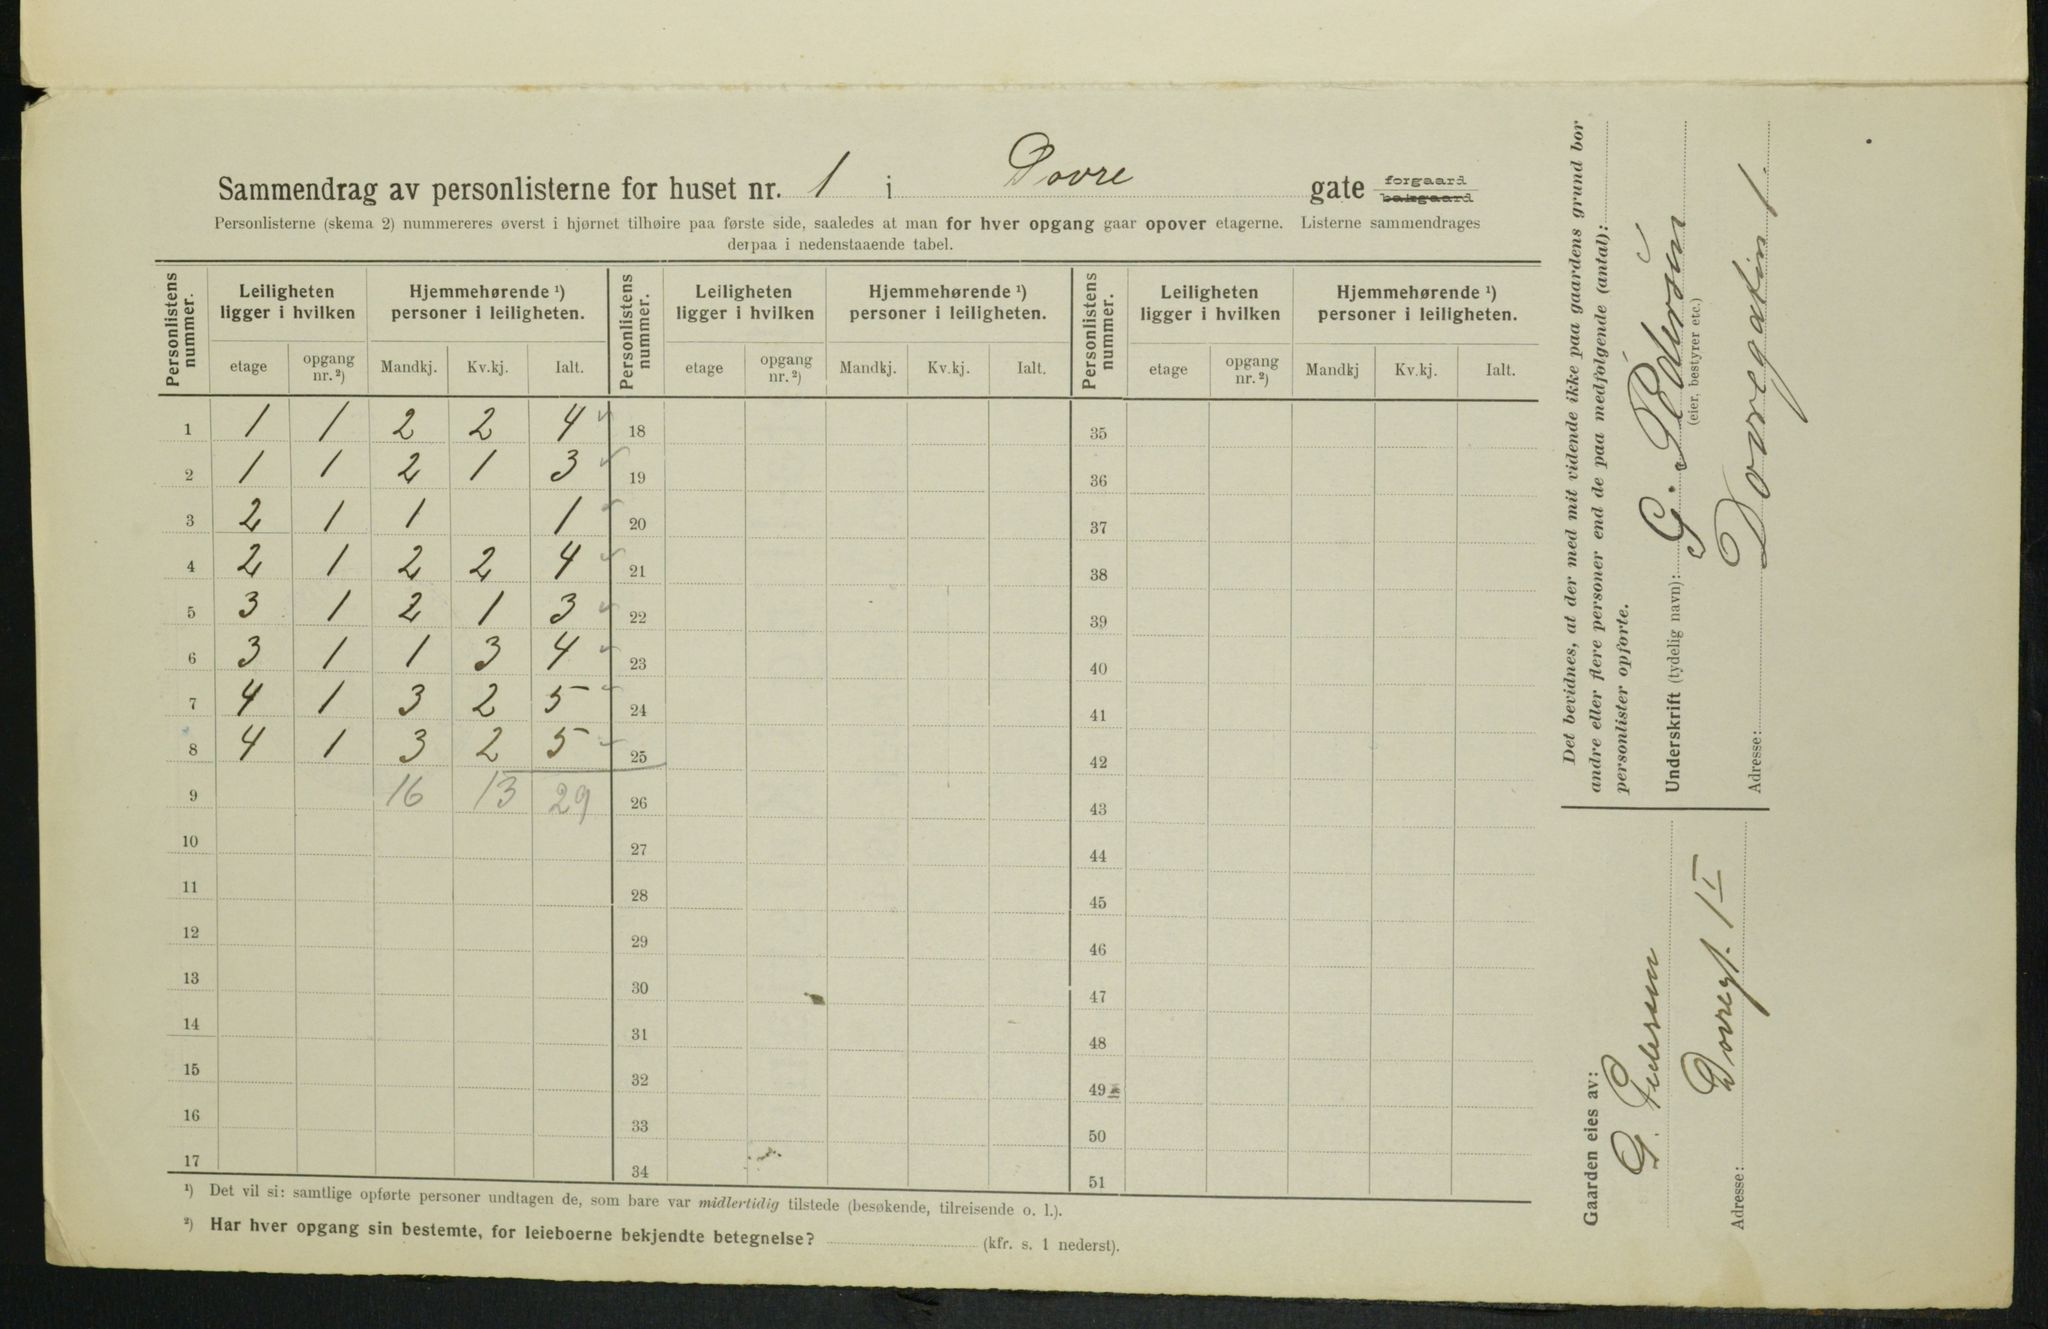 Sammendrag av personlisterne for huset nr. 1 i Dovre gate forgaard
bakgaard
Personlisterne (skema 2) nummereres øverst i hjørnet tilhøire paa første side, saaledes at man for hver opgang gaar opover etagerne. Listerne sammendrages
derpaa i nedenstaaende tabel.
Personlistens nummer. Leiligheten ligger i hvilken Hjemmehørende ¹) personer i leiligheten. Personlistens nummer. Leiligheten ligger i hvilken Hjemmehørende ¹) personer i leiligheten. Personlistens nummer. Leiligheten ligger i hvilken Hjemmehørende ¹) personer i leiligheten.
etage opgang nr. ²) Mandkj. Kv.kj. Ialt. etage opgang nr. ²) Mandkj. Kv.kj. Ialt. etage opgang nr. ²) Mandkj Kv.kj. Ialt.
1 1 1 2 2 4 ✓ 18 35
2 1 1 2 1 3 ✓ 19 36
3 2 1 1 1 ✓ 20 37
4 2 1 2 2 4 ✓ 21 38
5 3 1 2 1 3 ✓ 22 39
6 3 1 1 3 4 ✓ 23 40
7 4 1 3 2 5 ✓ 24 41
8 4 1 3 2 5 ✓ 25 42
9 16 13 29 26 43
10 27 44
11 28 45
12 29 46
13 30 47
14 31 48
15 32 49
16 33 50
17 34 51
¹) Det vil si: samtlige opførte personer undtagen de, som bare var midlertidig tilstede (besøkende, tilreisende o. l.).
²) Har hver opgang sin bestemte, for leieboerne bekjendte betegnelse? (kfr. s. 1 nederst).
Det bevidnes, at der med mit vidende ikke paa gaardens grund bor
andre eller flere personer end de paa medfølgende (antal):
personlister opførte.
Underskrift (tydelig navn): G. Pedersen
(eier, bestyrer etc.)
Adresse: Dovregaten 1.
Gaarden eies av:
G. Pedersen
Adresse: Dovregt. 1 I